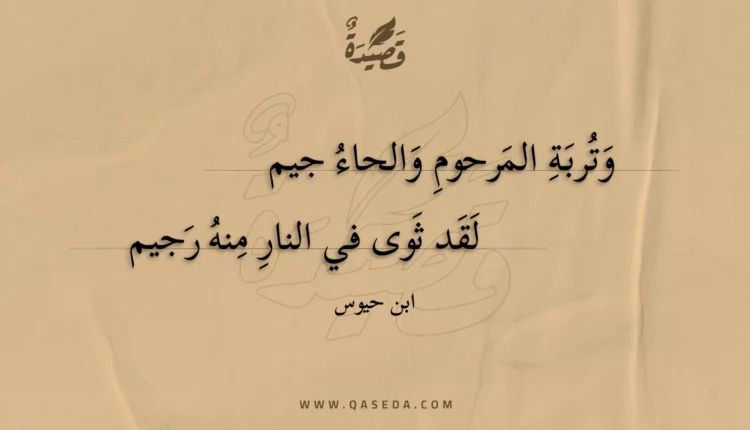 قَصِيدَةٌ
وَتُربَةِ المَرحومِ وَالحاءُ جيم
لَقَد ثَوى في النارِ مِنهُ رَجيم
ابن حيوس
WWW.QASEDA.COM